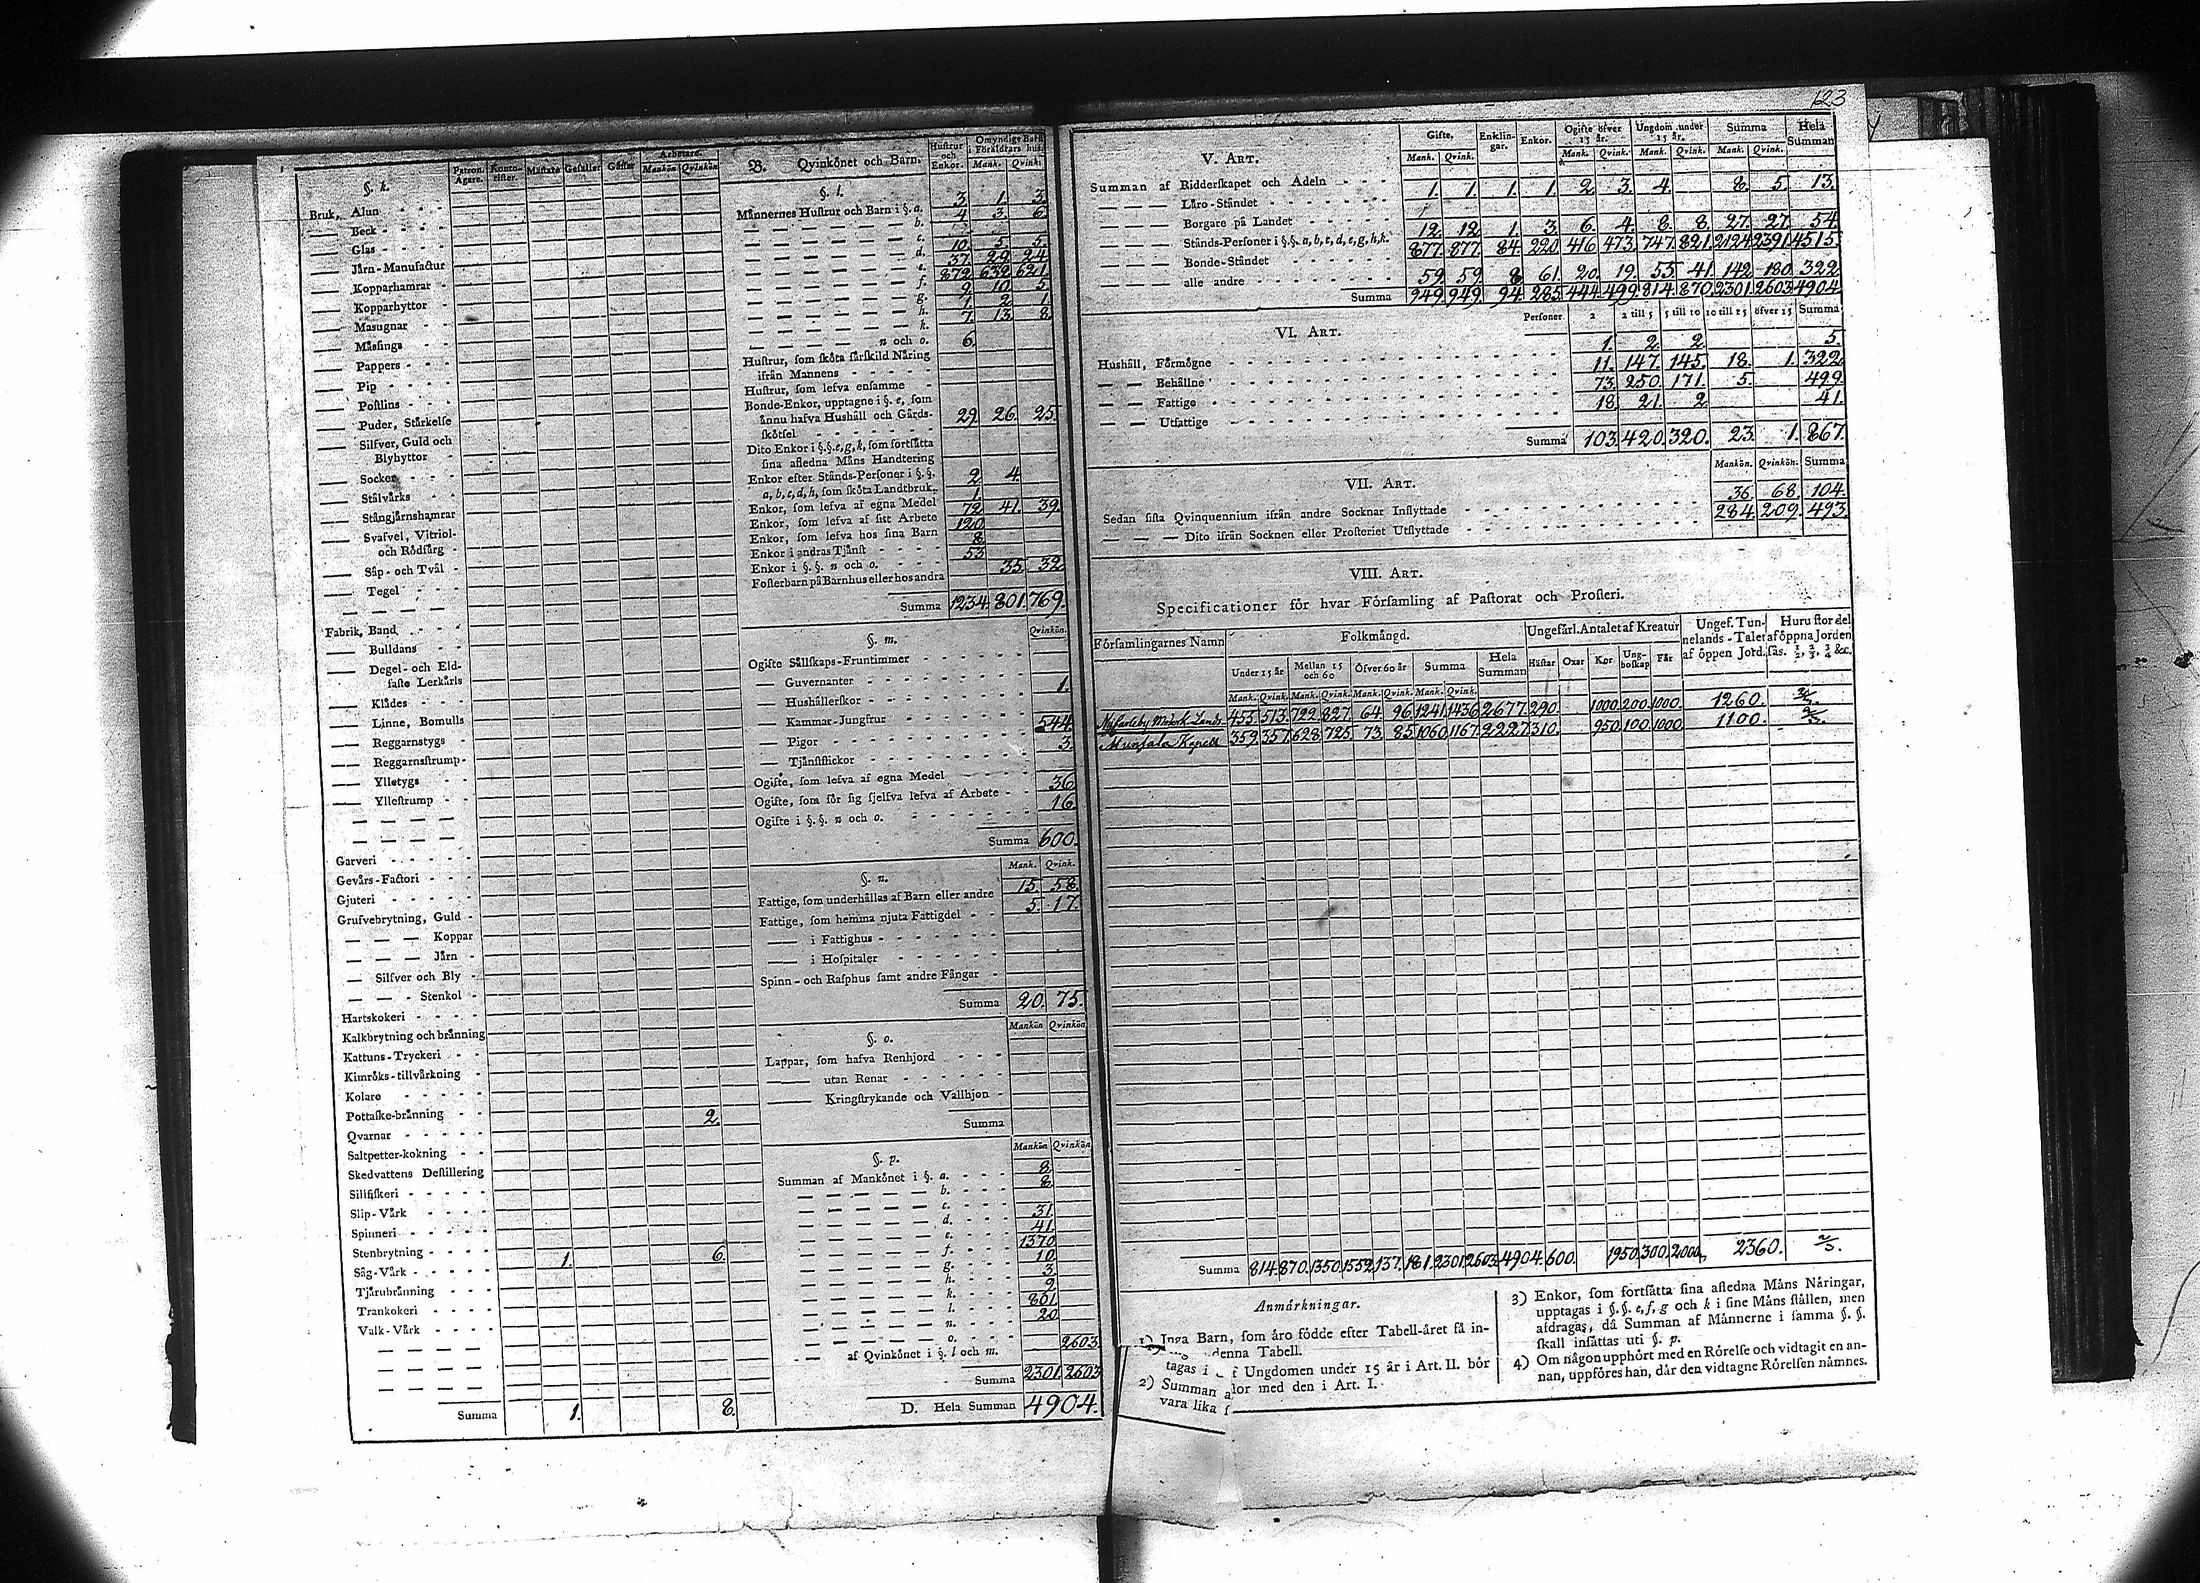 123
§. k.
Patron. Ägare.
Konto- rister.
Mästare
Gesäller
Gossar
Arbetare.
Mankön Qvinkön
Bruk, Alun
— Beck
— Glas
— Järn-Manufactur
— Kopparhamrar
— Kopparhyttor
— Masugnar
— Mässings
— Pappers
— Pip
— Postlins
— Puder, Stärkelse
— Silfver, Guld och
Blyhyttor
— Socker
— Stålvärks
— Stångjärnshamrar
— Svafvel, Vitriol-
och Rödfärg
— Såp- och Tvål
— Tegel
Fabrik, Band
— Bulldans
— Degel- och Eld-
faste Lerkärls
— Klädes
— Linne, Bomulls
— Reggarnstygs
— Reggarnsstrump
— Ylletygs
— Yllestrump
Garveri
Gevärs-Factori
Gjuteri
Grufvebrytning, Guld
— — — Koppar
— — — Järn
— Silfver och Bly
— — Stenkol
Hartskokeri
Kalkbrytning och bränning
Kattuns-Tryckeri
Kimröks-tillvärkning
Kolare
Pottaske-bränning 2.
Qvarnar
Saltpetter-kokning
Skedvattens Destillering
Sillfiskeri
Slip-Värk
Spinneri
Stenbrytning 1. 6.
Såg-Värk
Tjärubränning
Trankokeri
Valk-Värk
Summa 1. 8.
B. Qvinkönet och Barn.
Hustrur och Enkor.
Omyndige Barn i Föräldrars hus.
Mank. Qvink.
§. l.
Männernes Hustrur och Barn i §. a. 3. 1. 3.
b. 4. 3. 6.
c.
d. 10. 5. 5.
e. 37. 29. 24.
f. 872. 632. 621.
g. 9. 10. 5.
h. 1. 2. 1.
k. 7. 13. 8.
n och o. 6.
Hustrur, som sköta särskild Näring
ifrån Mannens
Hustrur, som lefva ensamme
Bonde-Enkor, upptagne i §. e, som
ännu hafva Hushåll och Gårds-
skötsel 29. 26. 25.
Dito Enkor i §.§. e, g, k, som fortsätta
sina afledna Mäns Handtering
Enkor efter Stånds-Personer i §.§.
a, b, c, d, h, som sköta Landtbruk 2. 4.
Enkor, som lefva af egna Medel 1.
Enkor, som lefva af sitt Arbete 72. 41. 39.
Enkor, som lefva hos sina Barn 120.
Enkor i andras Tjänst 8.
Enkor i §.§. n och o. 53.
Fosterbarn på Barnhus eller hos andra 35. 32.
Summa 1234. 801. 769.
§. m.
Qvinkön.
Ogifte Sällskaps-Fruntimmer
— Guvernanter
— Hushållerskor 1.
— Kammar-Jungfrur
— Pigor 544.
— Tjänstflickor 3.
Ogifte, som lefva af egna Medel
Ogifte, som för sig sjelfva lefva af Arbete 36.
Ogifte i §.§. n och o. 16.
Summa 600.
§. n.
Mank. Qvink.
Fattige, som underhållas af Barn eller andre 15. 58.
Fattige, som hemma njuta Fattigdel 5. 17.
— i Fattighus
— i Hospitaler
Spinn- och Rasphus samt andre Fångar
Summa 20. 75.
§. o.
Mankön Qvinkön
Lappar, som hafva Renhjord
— utan Renar
— Kringstrykande och Vallhjon
Summa
§. p.
Mankön Qvinkön
Summan af Mankönet i §. a. 8.
b. 8.
c.
d. 31.
e. 41.
f. 1370.
g. 10.
h. 3.
k. 9.
l. 801.
n. 20.
o.
af Qvinkönet i §. l och m. 2603.
Summa 2301. 2603.
D. Hela Summan 4904.
V. Art.
Gifte. Enklin- gar. Enkor. Ogifte öfver 15 år. Ungdom under 15 år. Summa Hela Summan
Mank. Qvink. Mank. Qvink. Mank. Qvink. Mank. Qvink.
Summan af Ridderskapet och Adeln 1. 1. 1. 1. 2. 3. 4. 8. 5. 13.
— — — Läro-Ståndet
— — — Borgare på Landet
— — — Stånds-Personer i §.§. a, b, c, d, e, g, h, k. 12. 12. 1. 3. 6. 4. 8. 8. 27. 27. 54.
— — — Bonde-Ståndet 877. 877. 84. 220. 416. 473. 747. 821. 2124. 2391. 4515.
— — — alle andre 59. 59. 8. 61. 20. 19. 55. 41. 142. 180. 322.
Summa 949. 949. 94. 285. 444. 499. 814. 870. 2301. 2603. 4904.
VI. Art.
Personer 2 2 till 5 5 till 10 10 till 15 öfver 15 Summa
Hushåll, Förmögne 1. 2. 2. 5.
— — Behållne 11. 147. 145. 18. 1. 322.
— — Fattige 73. 250. 171. 5. 499.
— — Utfattige 18. 21. 2. 41.
Summa 103. 420. 320. 23. 1. 867.
VII. Art.
Mankön. Qvinkön. Summa
Sedan sista Qvinquennium ifrån andre Socknar Inflyttade 36. 68. 104.
— — — Dito ifrån Socknen eller Prosteriet Utflyttade 284. 209. 493.
VIII. Art.
Specificationer för hvar Församling af Pastorat och Prosteri.
Församlingarnes Namn Folkmängd. Ungefärl. Antalet af Kreatur Ungef. Tun- nelands-Talet af öppen Jord. Huru stor del af öppna Jorden sås. 1/2, 2/3, 3/4 &c.
Under 15 år Mellan 15 och 60 Öfver 60 år Summa Hela Summan Hästar Oxar Kor Ung- boskap Får
Mank. Qvink. Mank. Qvink. Mank. Qvink. Mank. Qvink.
Nykarleby Moderk. Lands 455. 513. 722. 827. 64. 96. 1241. 1436. 2677. 290. 1000. 200. 1000. 1260. 2/3.
Munsala Kapell 359. 357. 628. 725. 73. 85. 1060. 1167. 2227. 310. 950. 100. 1000. 1100. 2/3.
Summa 814. 870. 1350. 1552. 137. 181. 2301. 2603. 4904. 600. 1950. 300. 2000. 2360. 2/3.
Anmärkningar.
1) Inga Barn, som äro födde efter Tabell-året få in-
tagas i denna Tabell.
2) Summan a Ungdomen under 15 år i Art. II. bör
vara lika s lor med den i Art. I.
3) Enkor, som fortsätta sina afledna Mäns Näringar,
upptagas i §.§. e, f, g och k i sine Mäns ställen, men
afdragas, då Summan af Männerne i samma §.§.
skall insättas uti §. p.
4) Om någon upphört med en Rörelse och vidtagit en an-
nan, uppföres han, där den vidtagne Rörelsen nämnes.